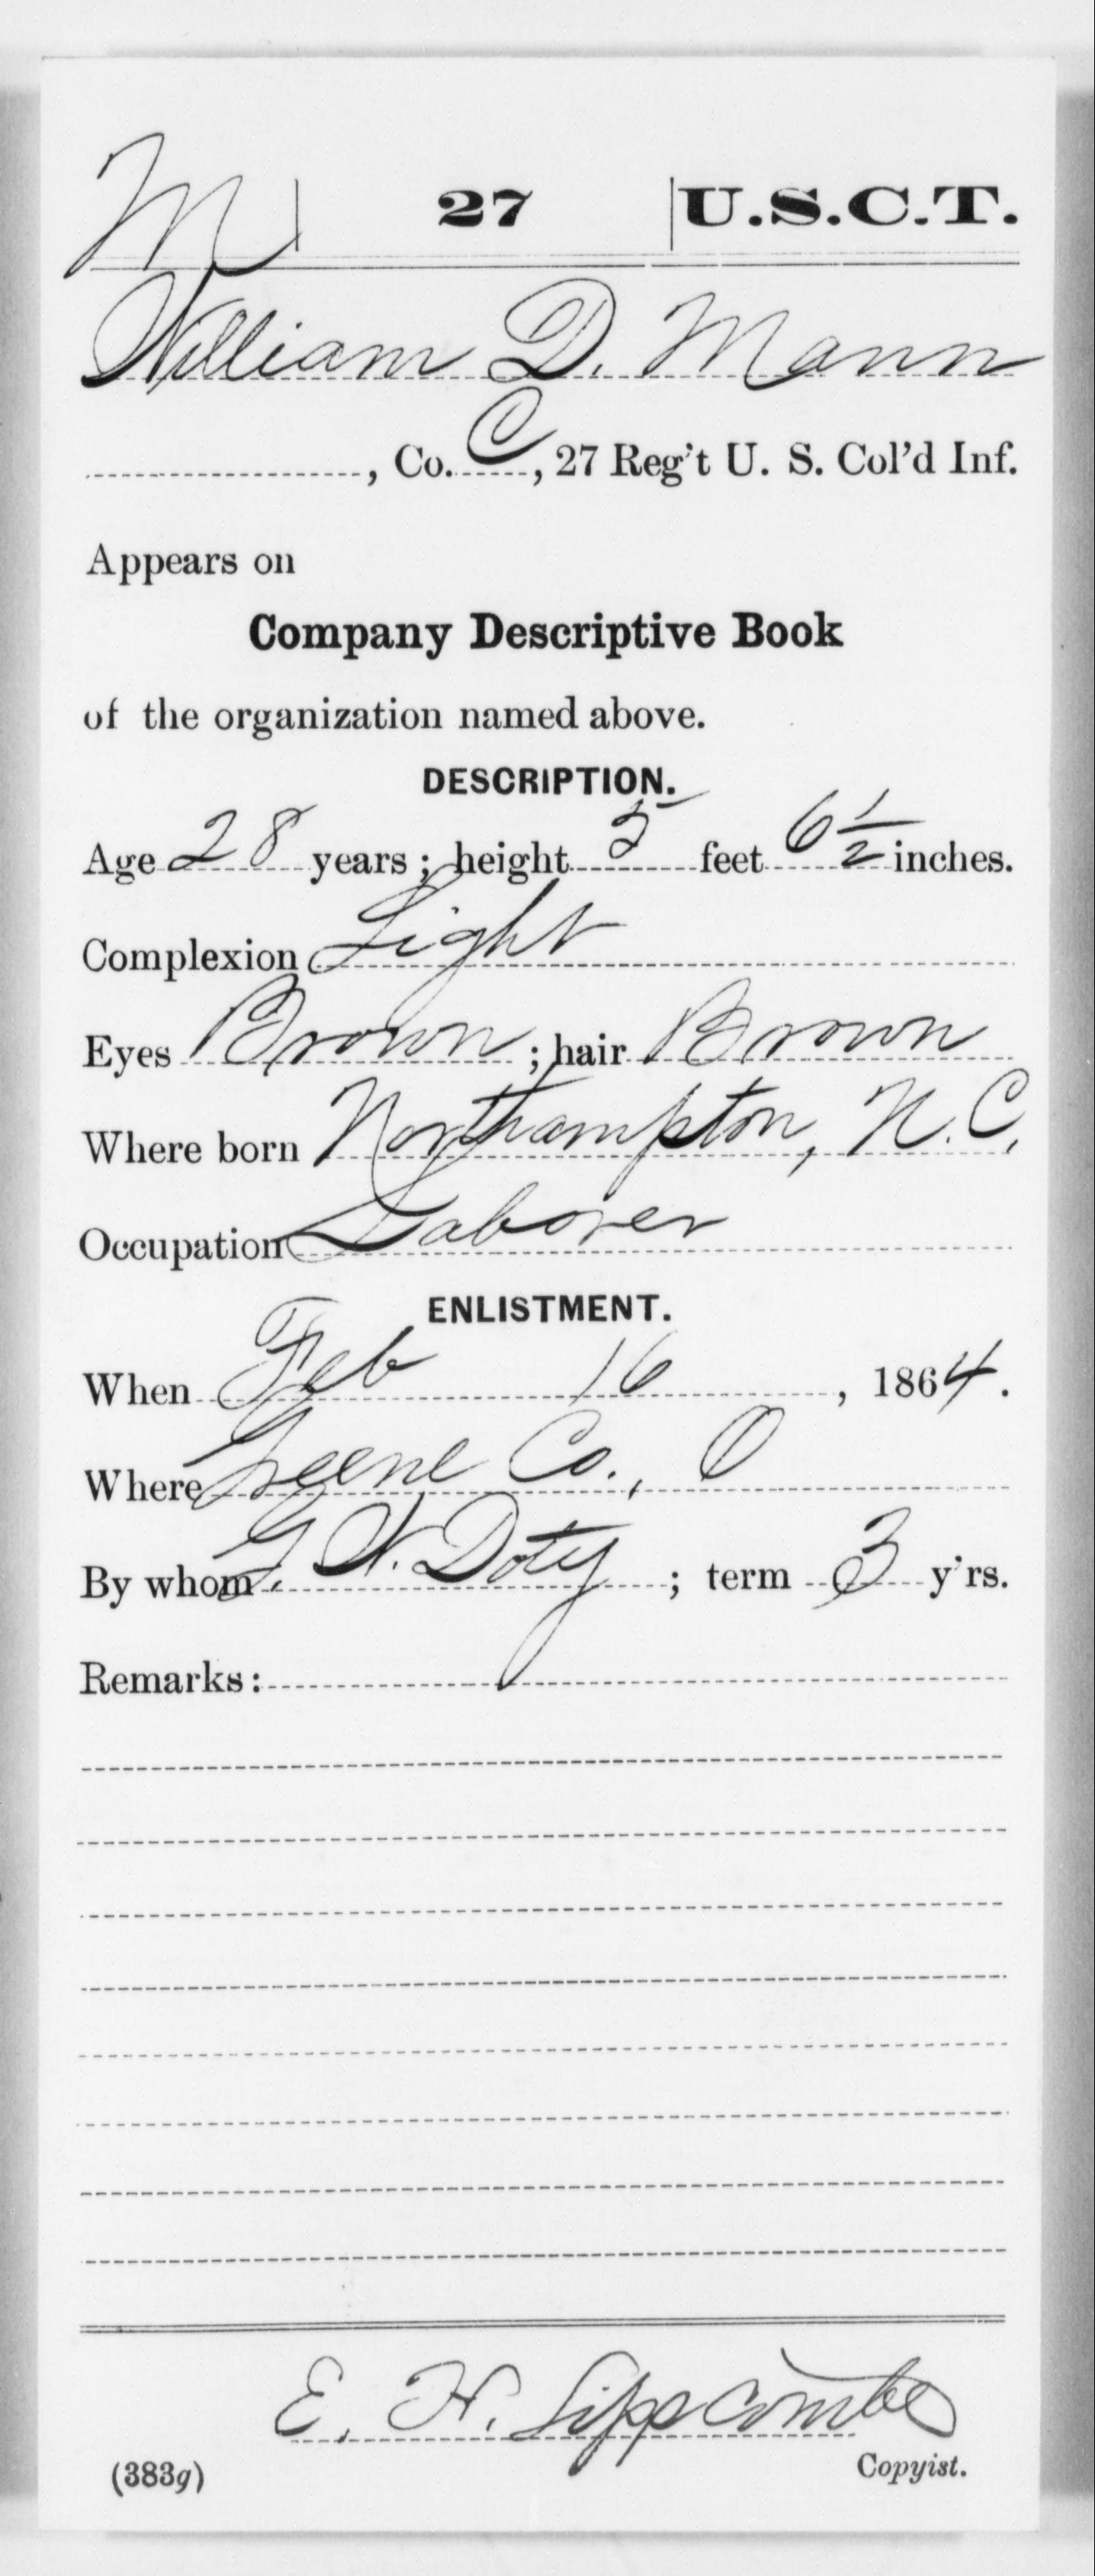 M | 27 | U.S.C.T.
William D. Mann
, Co. C, 27 Reg't U. S. Col'd Inf.
Appears on
Company Descriptive Book
of the organization named above.
DESCRIPTION.
Age 28 years; height 5 feet 6 1/2 inches.
Complexion Light
Eyes Brown; hair Brown
Where born Northampton, N.C.
Occupation Laborer
ENLISTMENT.
When Feb 16, 1864.
Where Greene Co., O
By whom G. W. Doty; term 3 y'rs.
Remarks:
E. H. Lippscombe
Copyist.
(383g)